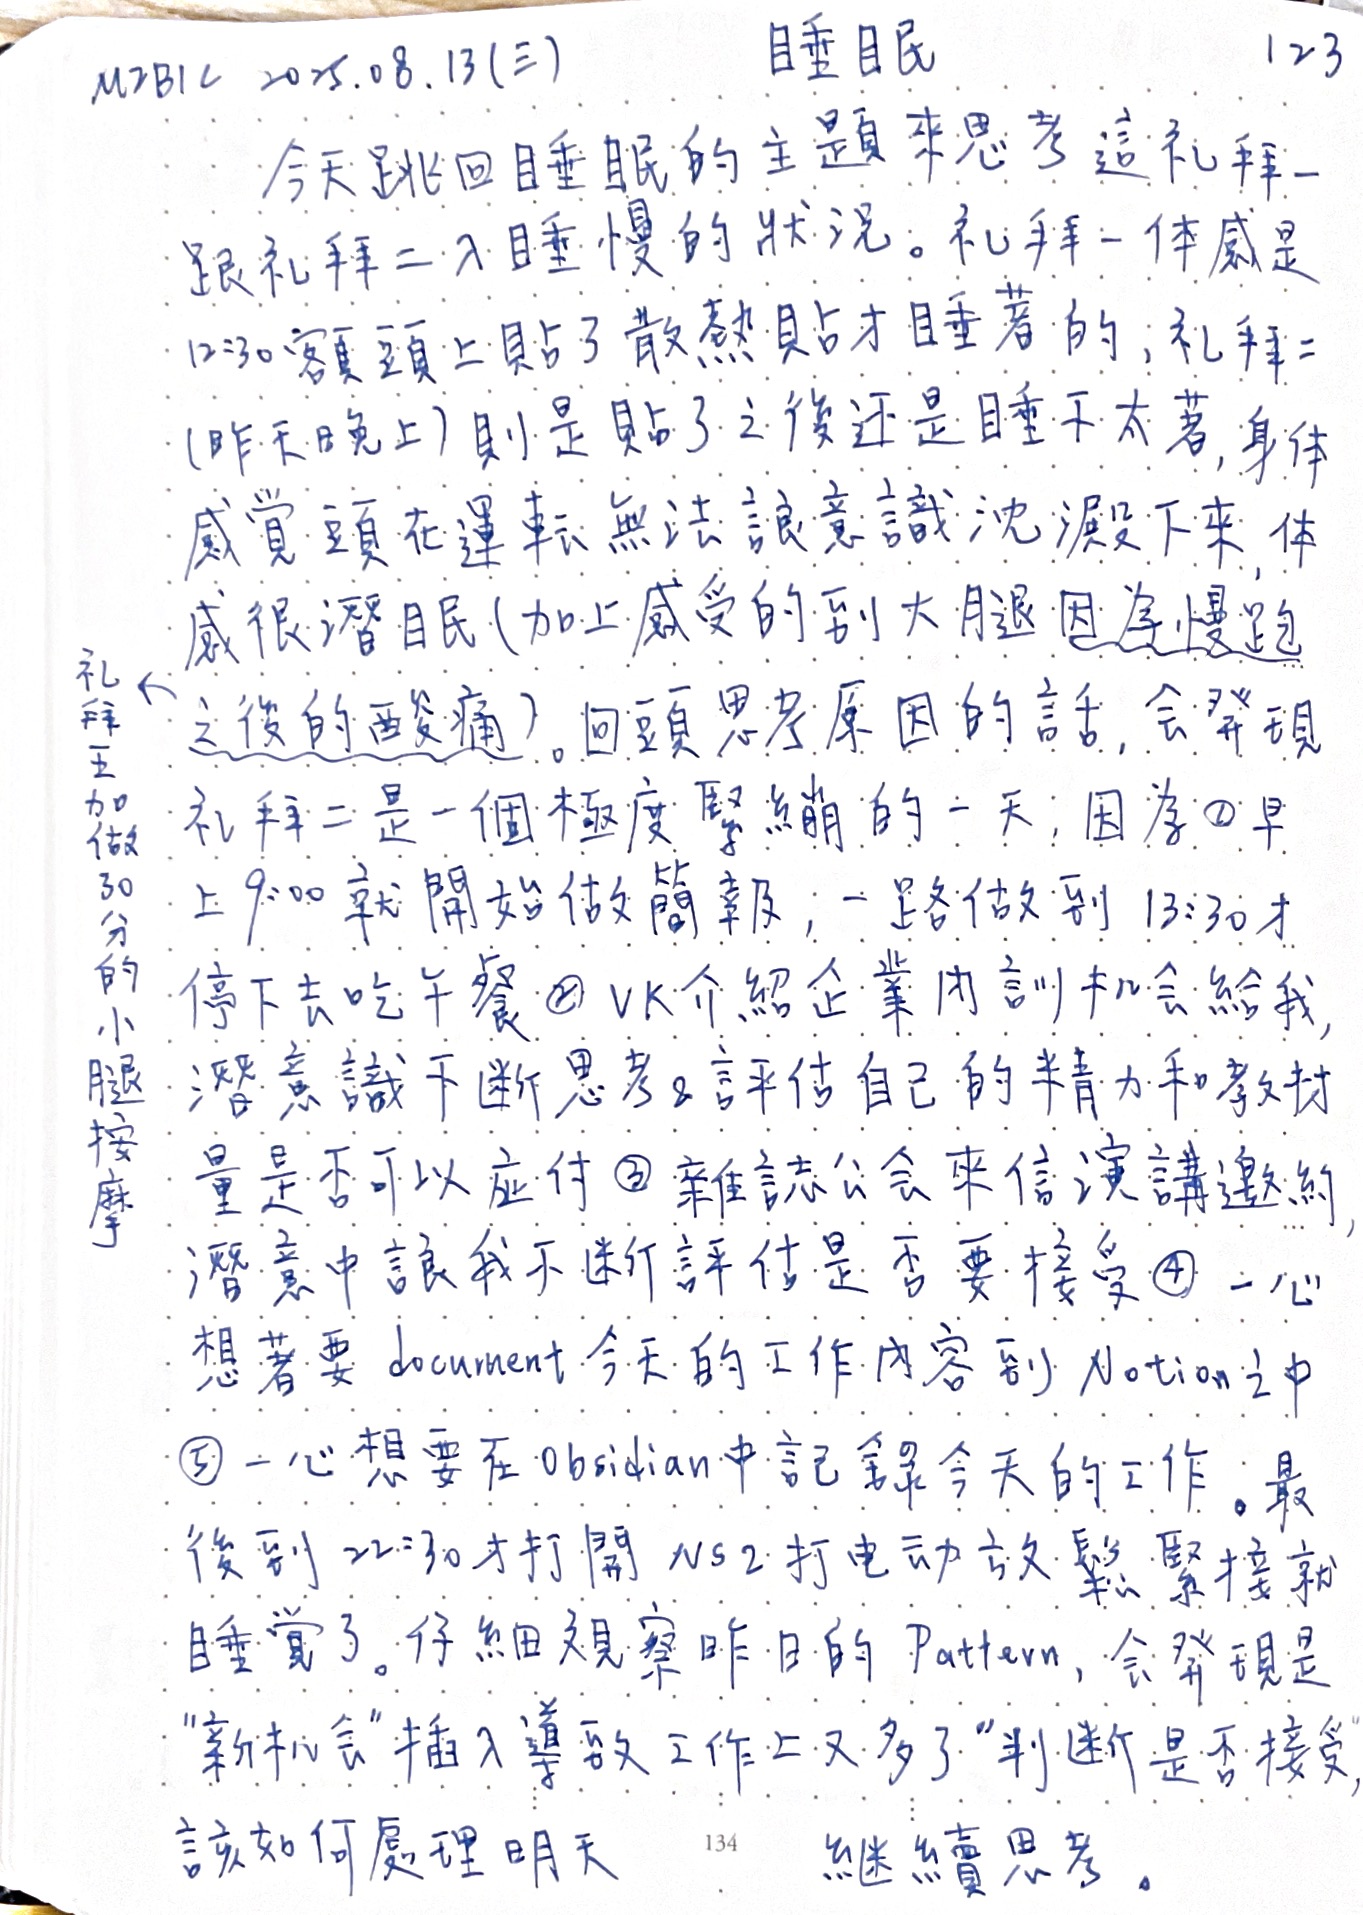 M2B1C 2025.08.13(三) 睡眠 123
今天跳回睡眠的主題來思考這礼拜一
跟礼拜二入睡慢的狀況。礼拜一体感是
12:30額頭上貼了散熱貼才睡著的,礼拜二
(昨天晚上)則是貼了之後还是睡不太著,身体
感覚頭在運転無法讓意識沈澱下來,体
感很潛眠(加上感受的到大腿因為慢跑
之後的酸痛)。回頭思考原因的話,会発現
礼拜二是一個極度緊繃的一天,因為①早
上9:00就開始做簡報,一路做到13:30才
停下去吃午餐②VK介紹企業內訓机会給我,
潛意識不断思考&評估自己的精力和教材
量是否可以应付③雜誌公会來信演講邀約,
潛意中讓我不断評估是否要接受④一心
想著要document今天的工作內容到Notion之中
⑤一心想要在Obsidian中記錄今天的工作。最
後到22:30才打開NS2打电动放鬆緊接就
睡覚了。仔細観察昨日的Pattern,会発現是
"新机会"插入導致工作上又多了"判断是否接受",
該如何處理明天 繼續思考。
134
礼拜五加做30分的小腿按摩